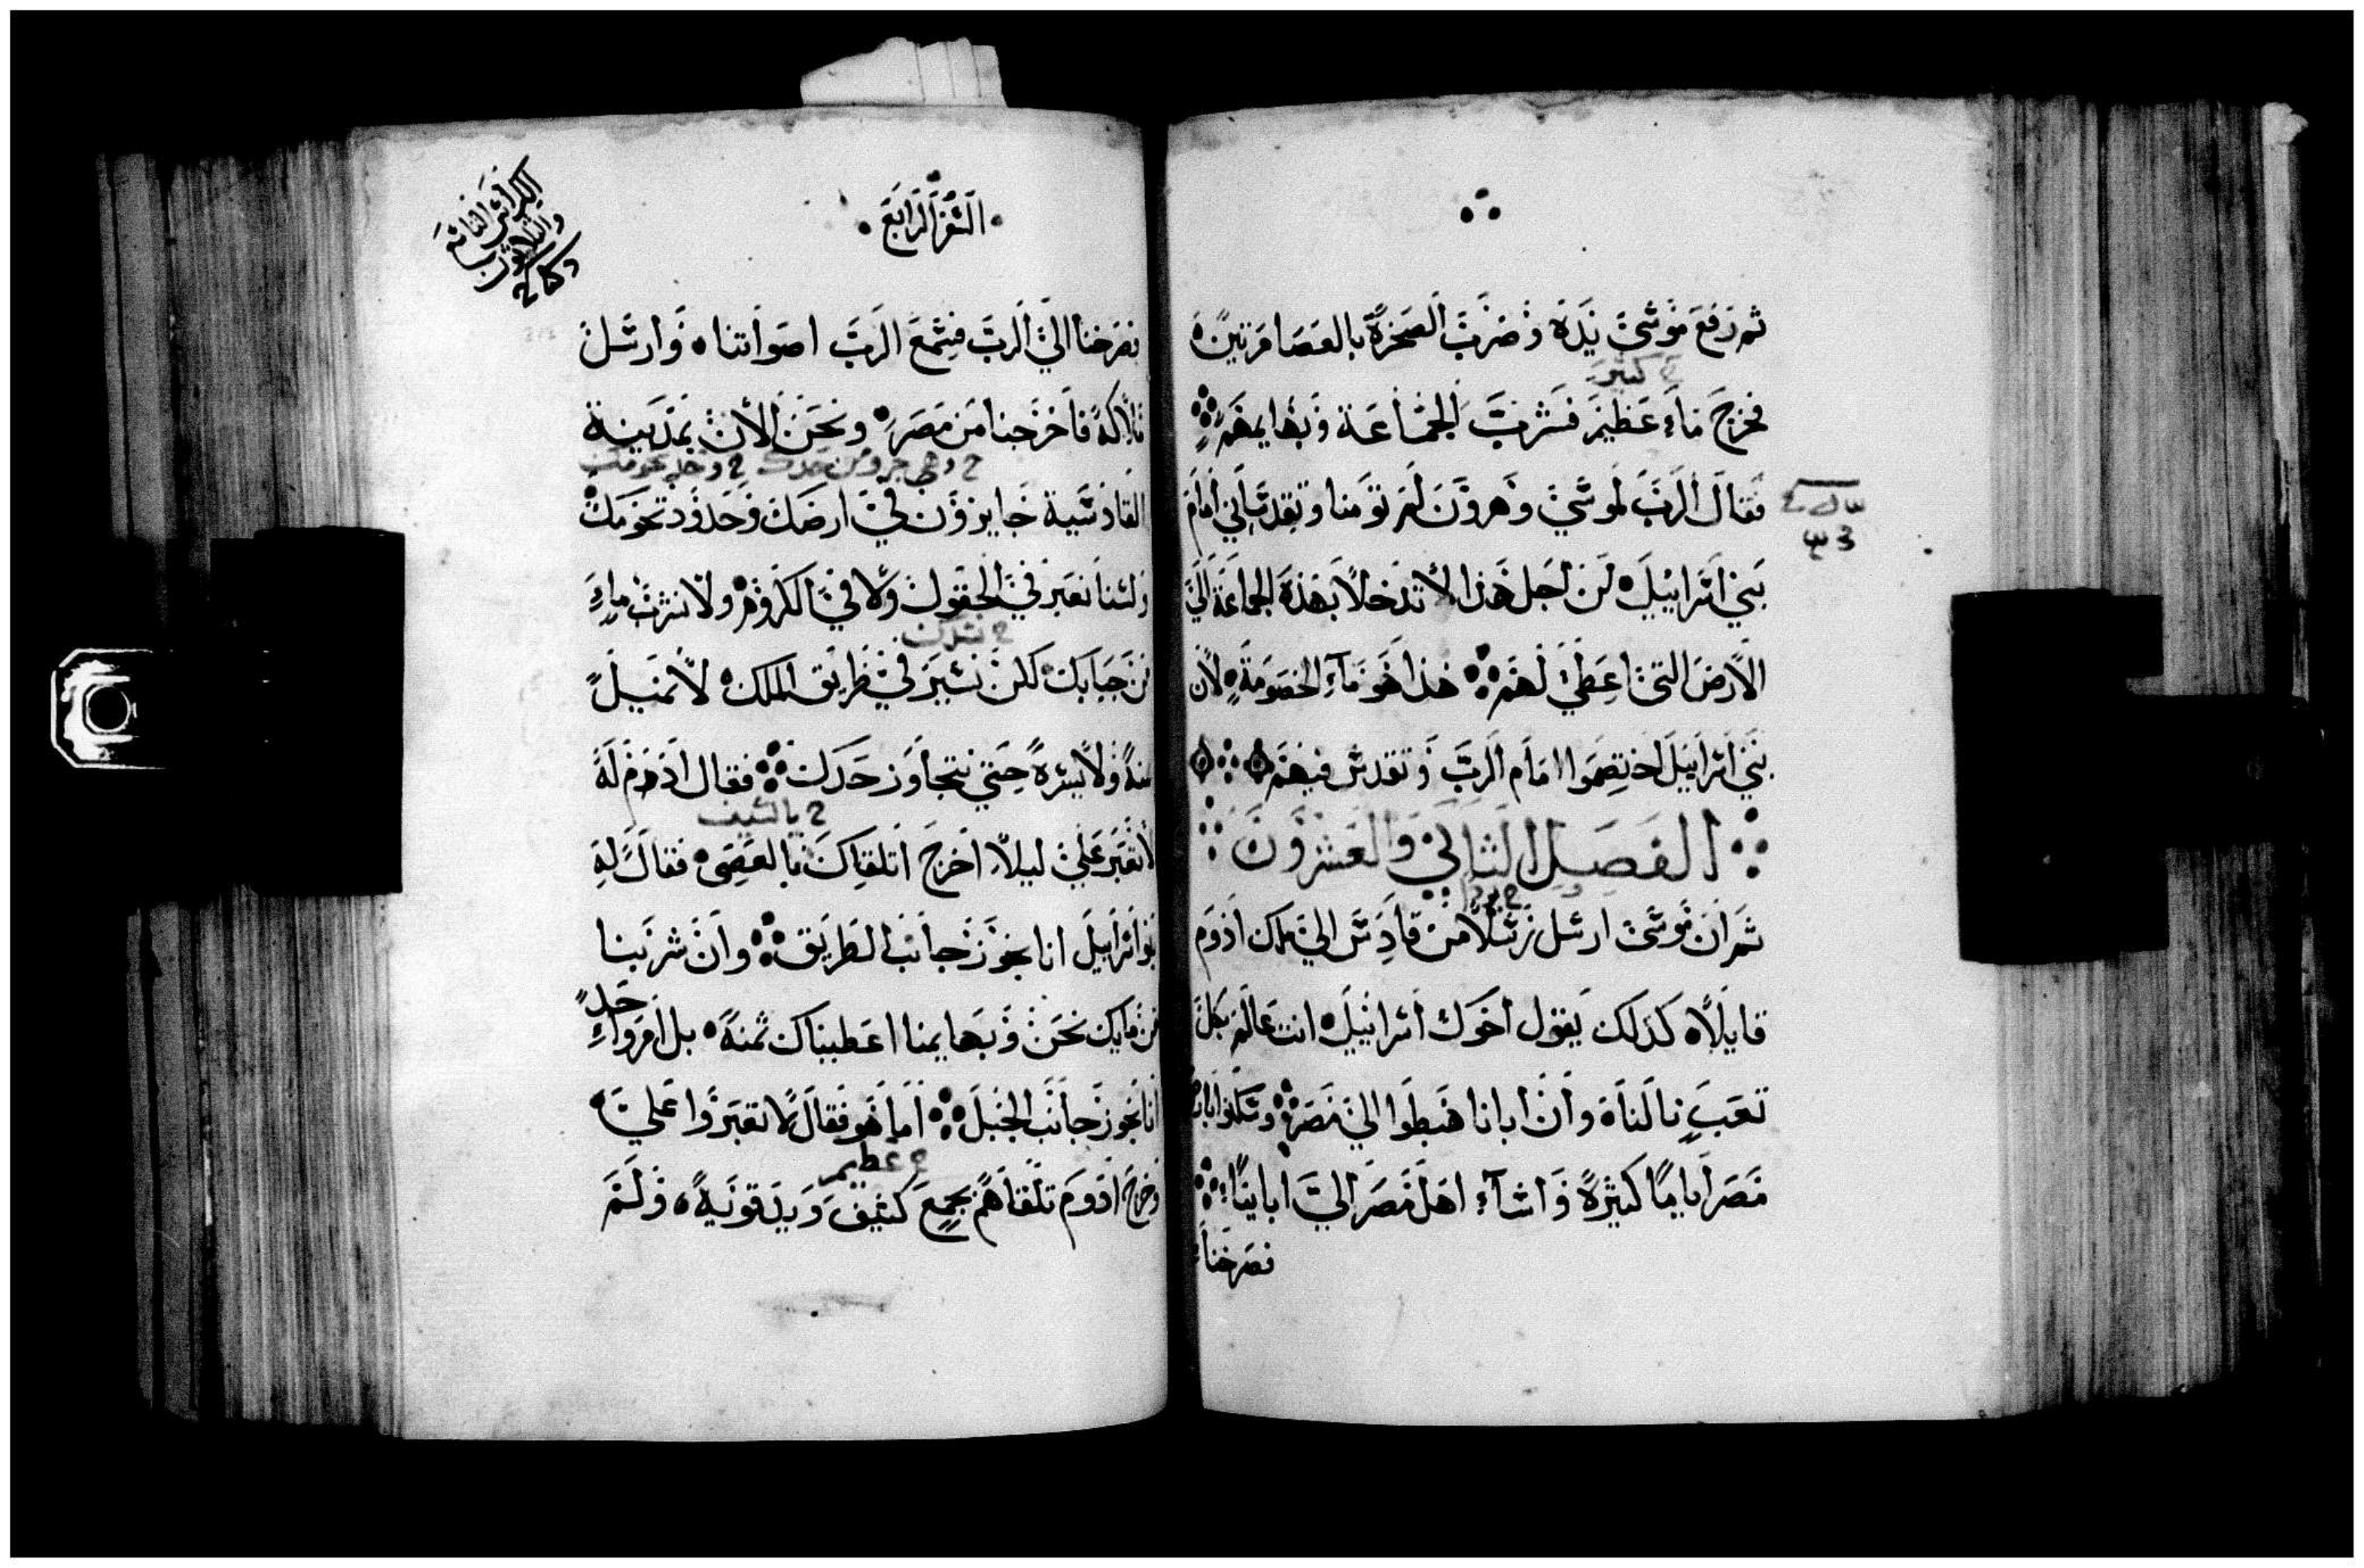 ثم رفع موسى يده وضرب الصخرة بالعصا مرتين
ح كثير
فخرج ماء عظيم فشربت الجماعة وبهايمهم
فقال الرب لموسي وهرون لم تومنا وتقدساني امام
بني اسراييل من اجل هذا لا تدخلا بهذه الجماعة الي
الارض التي اعطي لهم هذا هو ماء الخصومة لان
بني اسراييل اختصموا امام الرب وتقدس فيهم
الفصل الثاني والعشرون
ثم ان موسى ارسل رسلا من قادس الي ملك ادوم
قايلا كذلك يقول اخوك اسراييل انت عالم بكل
تعب نالناه وان ابانا هبطوا الي مصر وسكنوا
مصر اياما كثيرة واساء اهل مصر الي اباينا
فصرخنا
السفر الرابع
الكراس الثانية
والثلاثون
فصرخنا الي الرب فسمع الرب اصواتنا وارسل
ملاكه فاخرجنا من مصر ونحن الان بمدينة
القادسية جايزون في ارضك وحدود تخومك
ولسنا نعبر في الحقول ولا في الكروم ولا نشرب ماء
من جبابك لكن نسير في طريق الملك لا نميل
يمنة ولا يسره حتي نتجاوز حدك فقال ادوم له
ح بالسيف
لا تعبر علي ليلا اخرج اتلقاك بالعصى فقال له
بنو اسراييل انا نجوز جانب الطريق وان شربنا
من مايك نحن وبهايمنا اعطيناك ثمنه بل امر واحد
انا نجوز جانب الجبل اما هو فقال لا تعبروا علي
ح عظيم
وخرج ادوم تلقاهم بجمع كثيف ويد قوية ولم